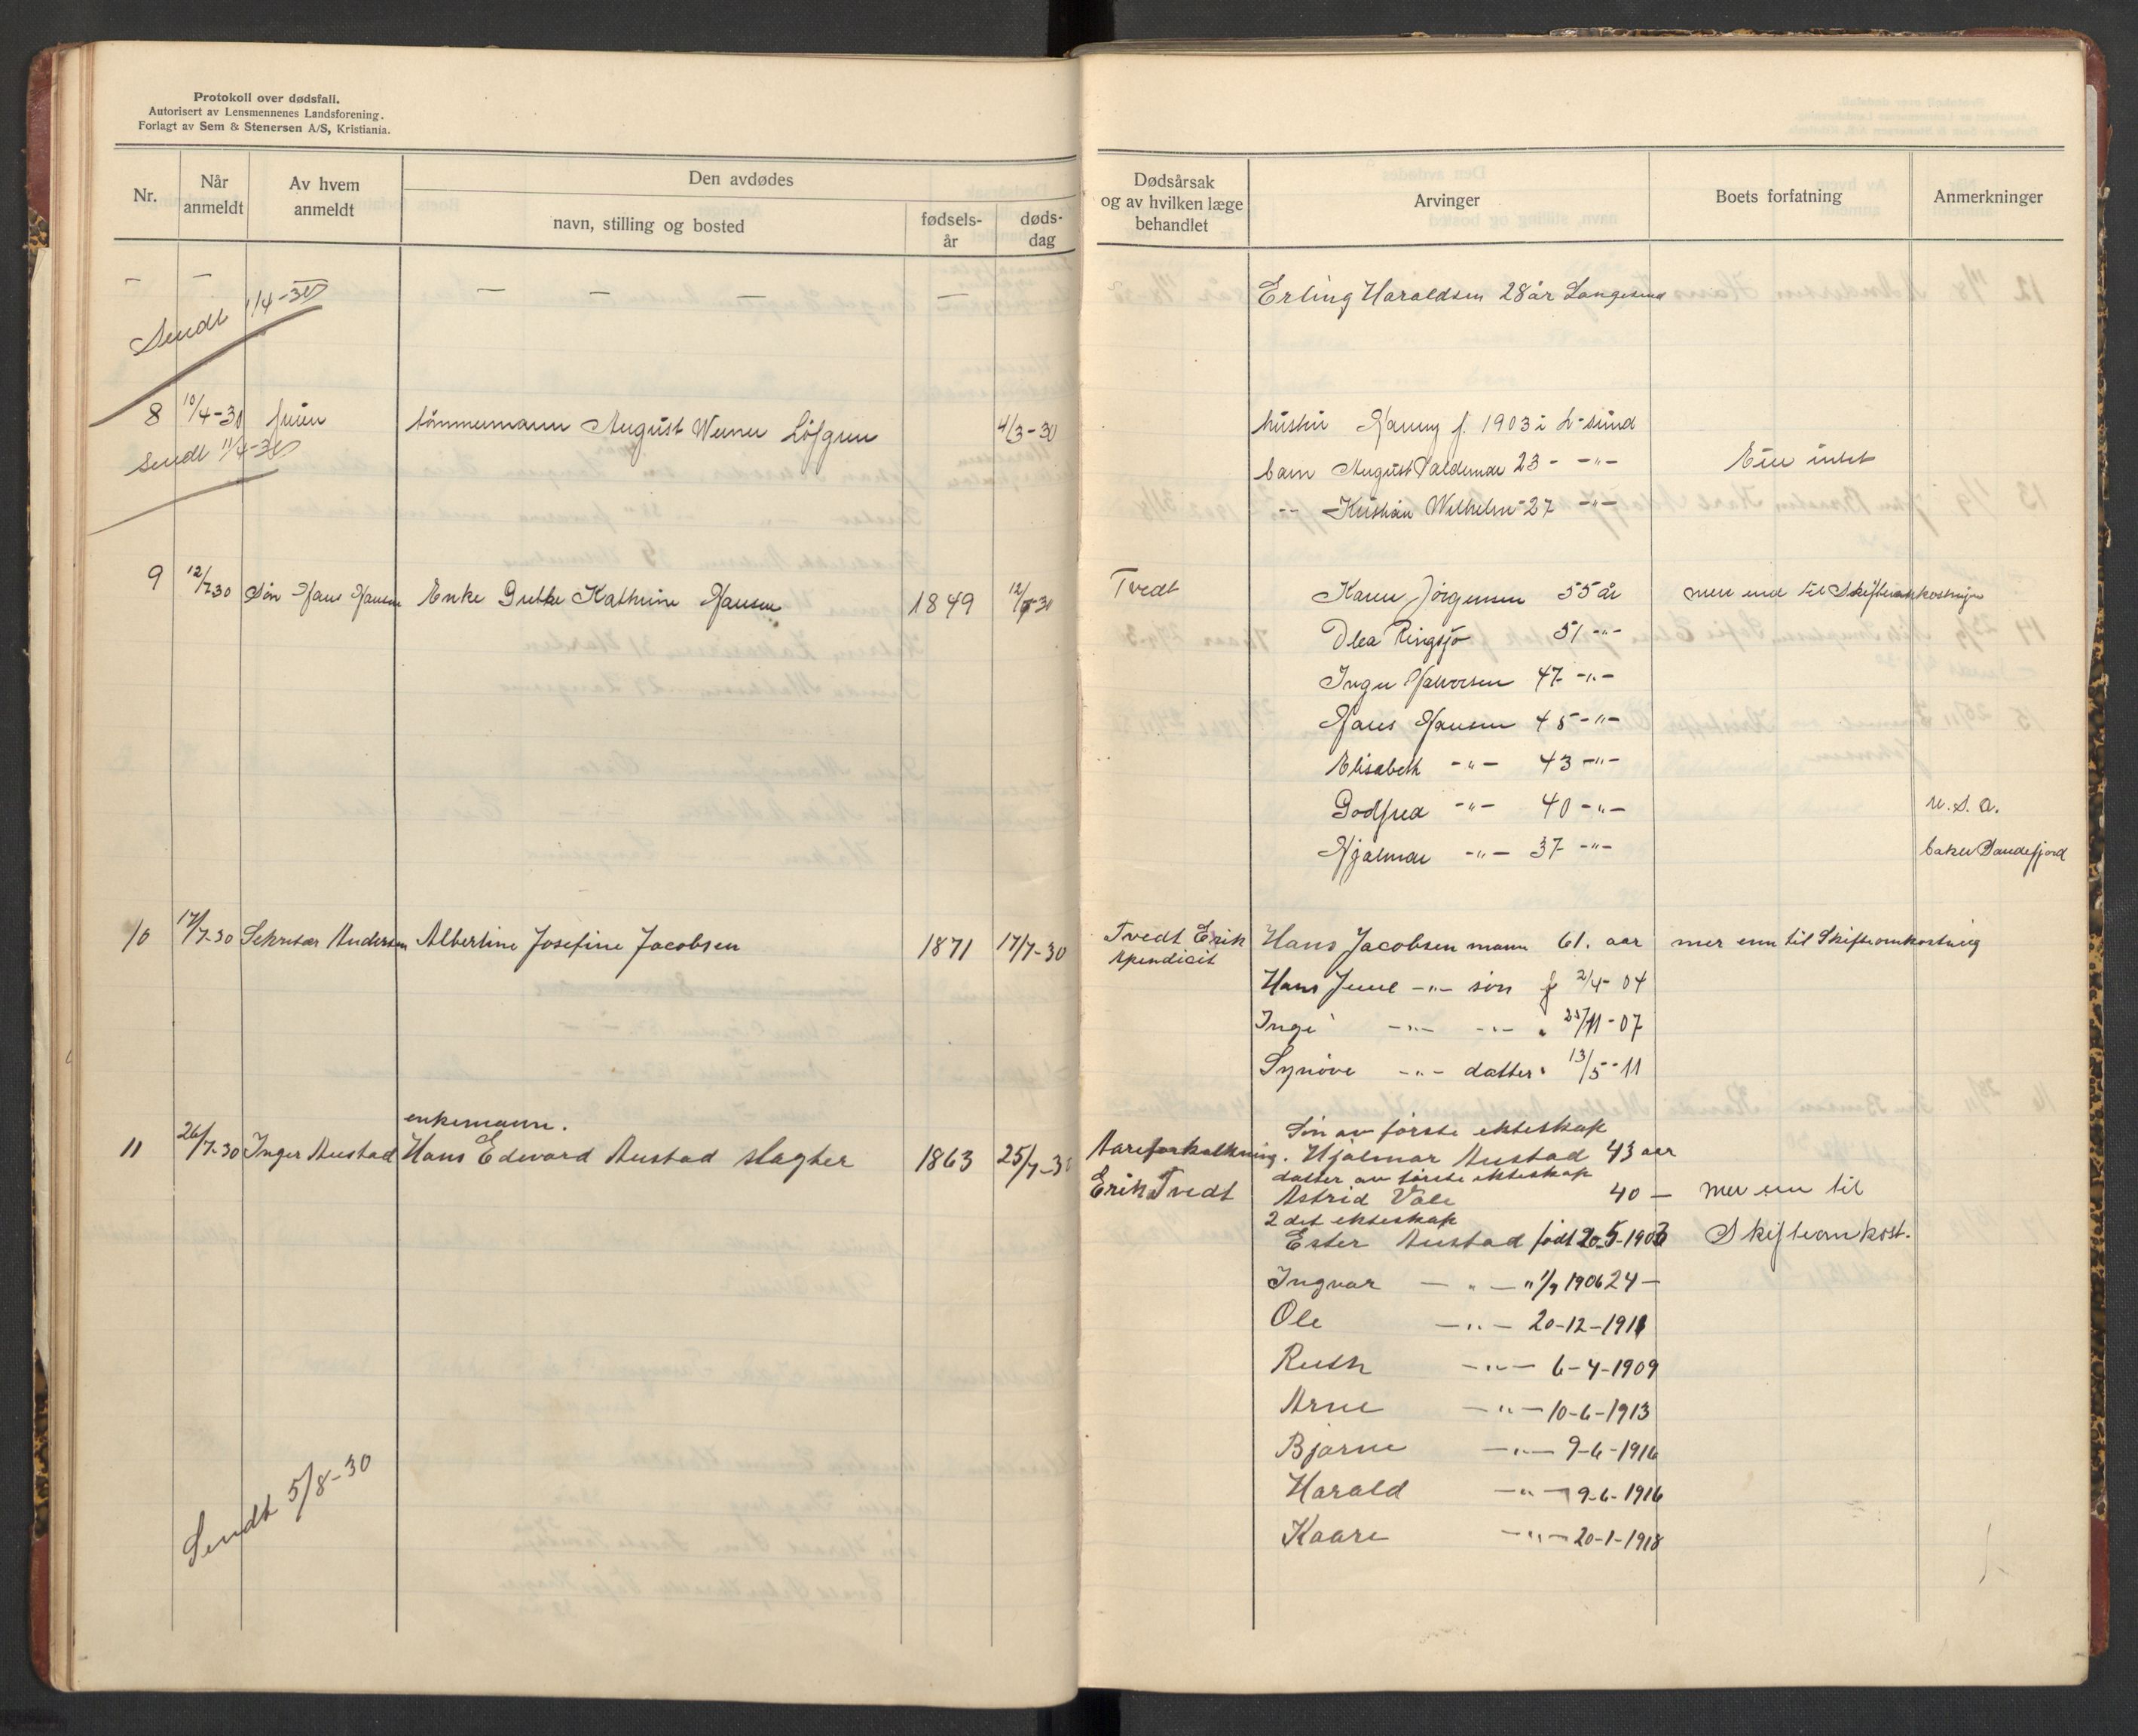 Protokoll over dødsfall.
Autorisert av Lensmennenes Landsforening.
Forlagt av Sem & Stenersen A/S, Kristiania.
Nr.
Når anmeldt
Av hvem anmeldt
Den avdødes
navn, stilling og bosted
fødsels-år
døds-dag
Dødsårsak og av hvilken læge behandlet
Arvinger
Boets forfatning
Anmerkninger
— — — — — — Erling Haraldsen 28 år Langesund
Sendt 1/4-30
8 10/4-30 fruen tömmermann August Werner Löfgren 4/3-30 hustru Fanny f. 1903 i L-sund
Sendt 11/4-30
barn August Valdemar 23 - -"- Eier intet
-"- Kristian Wilhelm 27 -"-
9 12/7 30 Sön Hans Hansen Enke Grethe Kathrine Hansen 1849 12/7-30 Tvedt Karen Jörgensen 55 år mer end til Skifteomkostninger
Olea Ringsjö 51 -"-
Inger Halvorsen 47 -"-
Hans Hansen 45 -"-
Elisabeth -"- 43 -"-
Godfred -"- 40 -"- U.S.A.
Hjalmar -"- 37 -"- baker Sandefjord
10 17/7-30 Sekretær Andersen Albertine Josefine Jacobsen 1871 17/7-30 Tvedt Erik Hans Jacobsen mann 61. aar mer enn til Skifteomkostning
Apendicit
Hans Juul -"- sön f 2/4-04
Inge -"- -"- " 25/11-07
Synöve -"- datter " 13/5-11
enkemann.
Sön av förste ekteskap
11 26/7-30 Inger Austad Hans Edvard Austad slagter 1863 25/7-30 Aareforkalkning. Hjalmar Austad 43 aar
datter av förste ekteskap
Erik Tvedt Astrid Vale 40 — mer enn til
2det ekteskap
Ester Austad födt 20-5-1903 Skifteomkost.
Ingvar — " — " 1/9 1906 24 —
Ole —"— 20-12-1911
Ruth —"— 6-4-1909
Arne —"— 10-6-1913
Bjarne —"— 9-6-1916
Harald —"— 9-6-1916
Kaare —"— 20-1-1918
Sendt 5/8-30